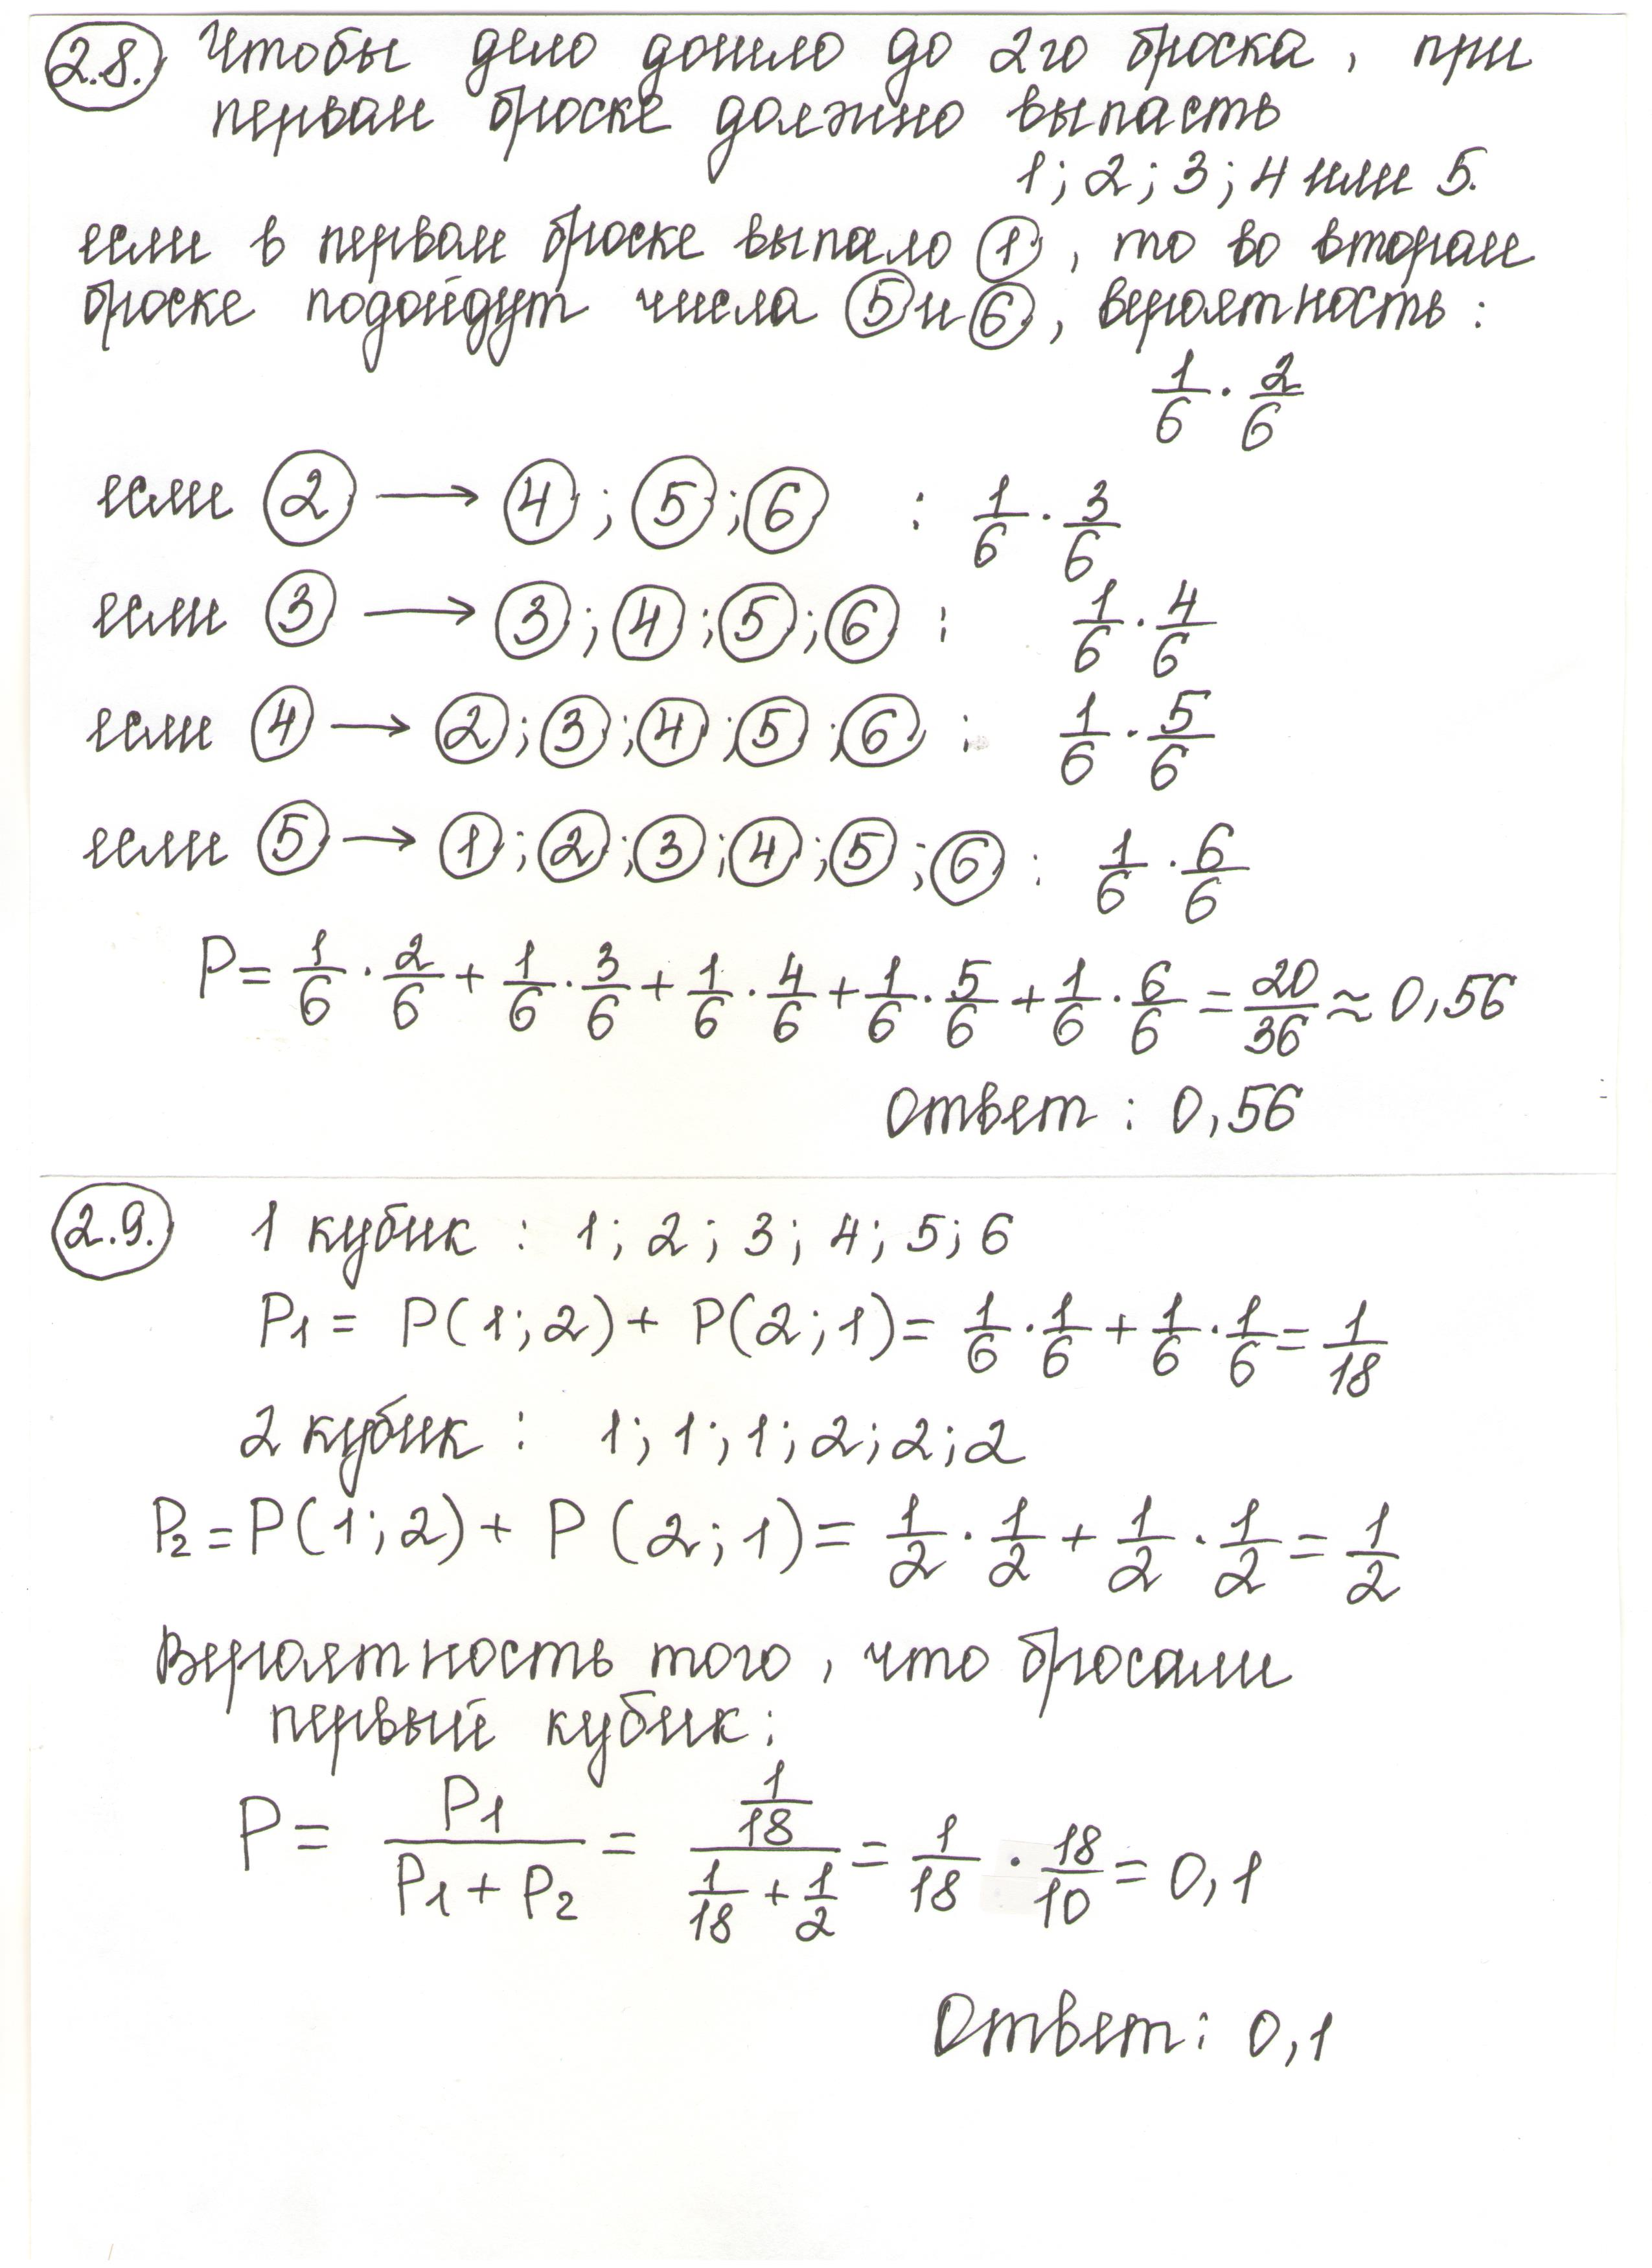 2.8. Чтобы дело дошло до 2го броска, при
первом броске должно выпасть
1; 2; 3; 4 или 5.
если в первом броске выпало 1, то во втором
броске подойдут числа 5 и 6, вероятность:
1/6 · 2/6
если 2 → 4; 5; 6 : 1/6 · 3/6
если 3 → 3; 4; 5; 6 : 1/6 · 4/6
если 4 → 2; 3; 4; 5; 6 : 1/6 · 5/6
если 5 → 1; 2; 3; 4; 5; 6 : 1/6 · 6/6
P = 1/6 · 2/6 + 1/6 · 3/6 + 1/6 · 4/6 + 1/6 · 5/6 + 1/6 · 6/6 = 20/36 ≈ 0,56
Ответ: 0,56
2.9. 1 кубик : 1; 2; 3; 4; 5; 6
P1 = P(1;2) + P(2;1) = 1/6 · 1/6 + 1/6 · 1/6 = 1/18
2 кубик : 1; 1; 1; 2; 2; 2
P2 = P(1;2) + P(2;1) = 1/2 · 1/2 + 1/2 · 1/2 = 1/2
Вероятность того, что бросали
первый кубик:
P = P1/(P1 + P2) = (1/18)/(1/18 + 1/2) = 1/18 · 18/10 = 0,1
Ответ: 0,1